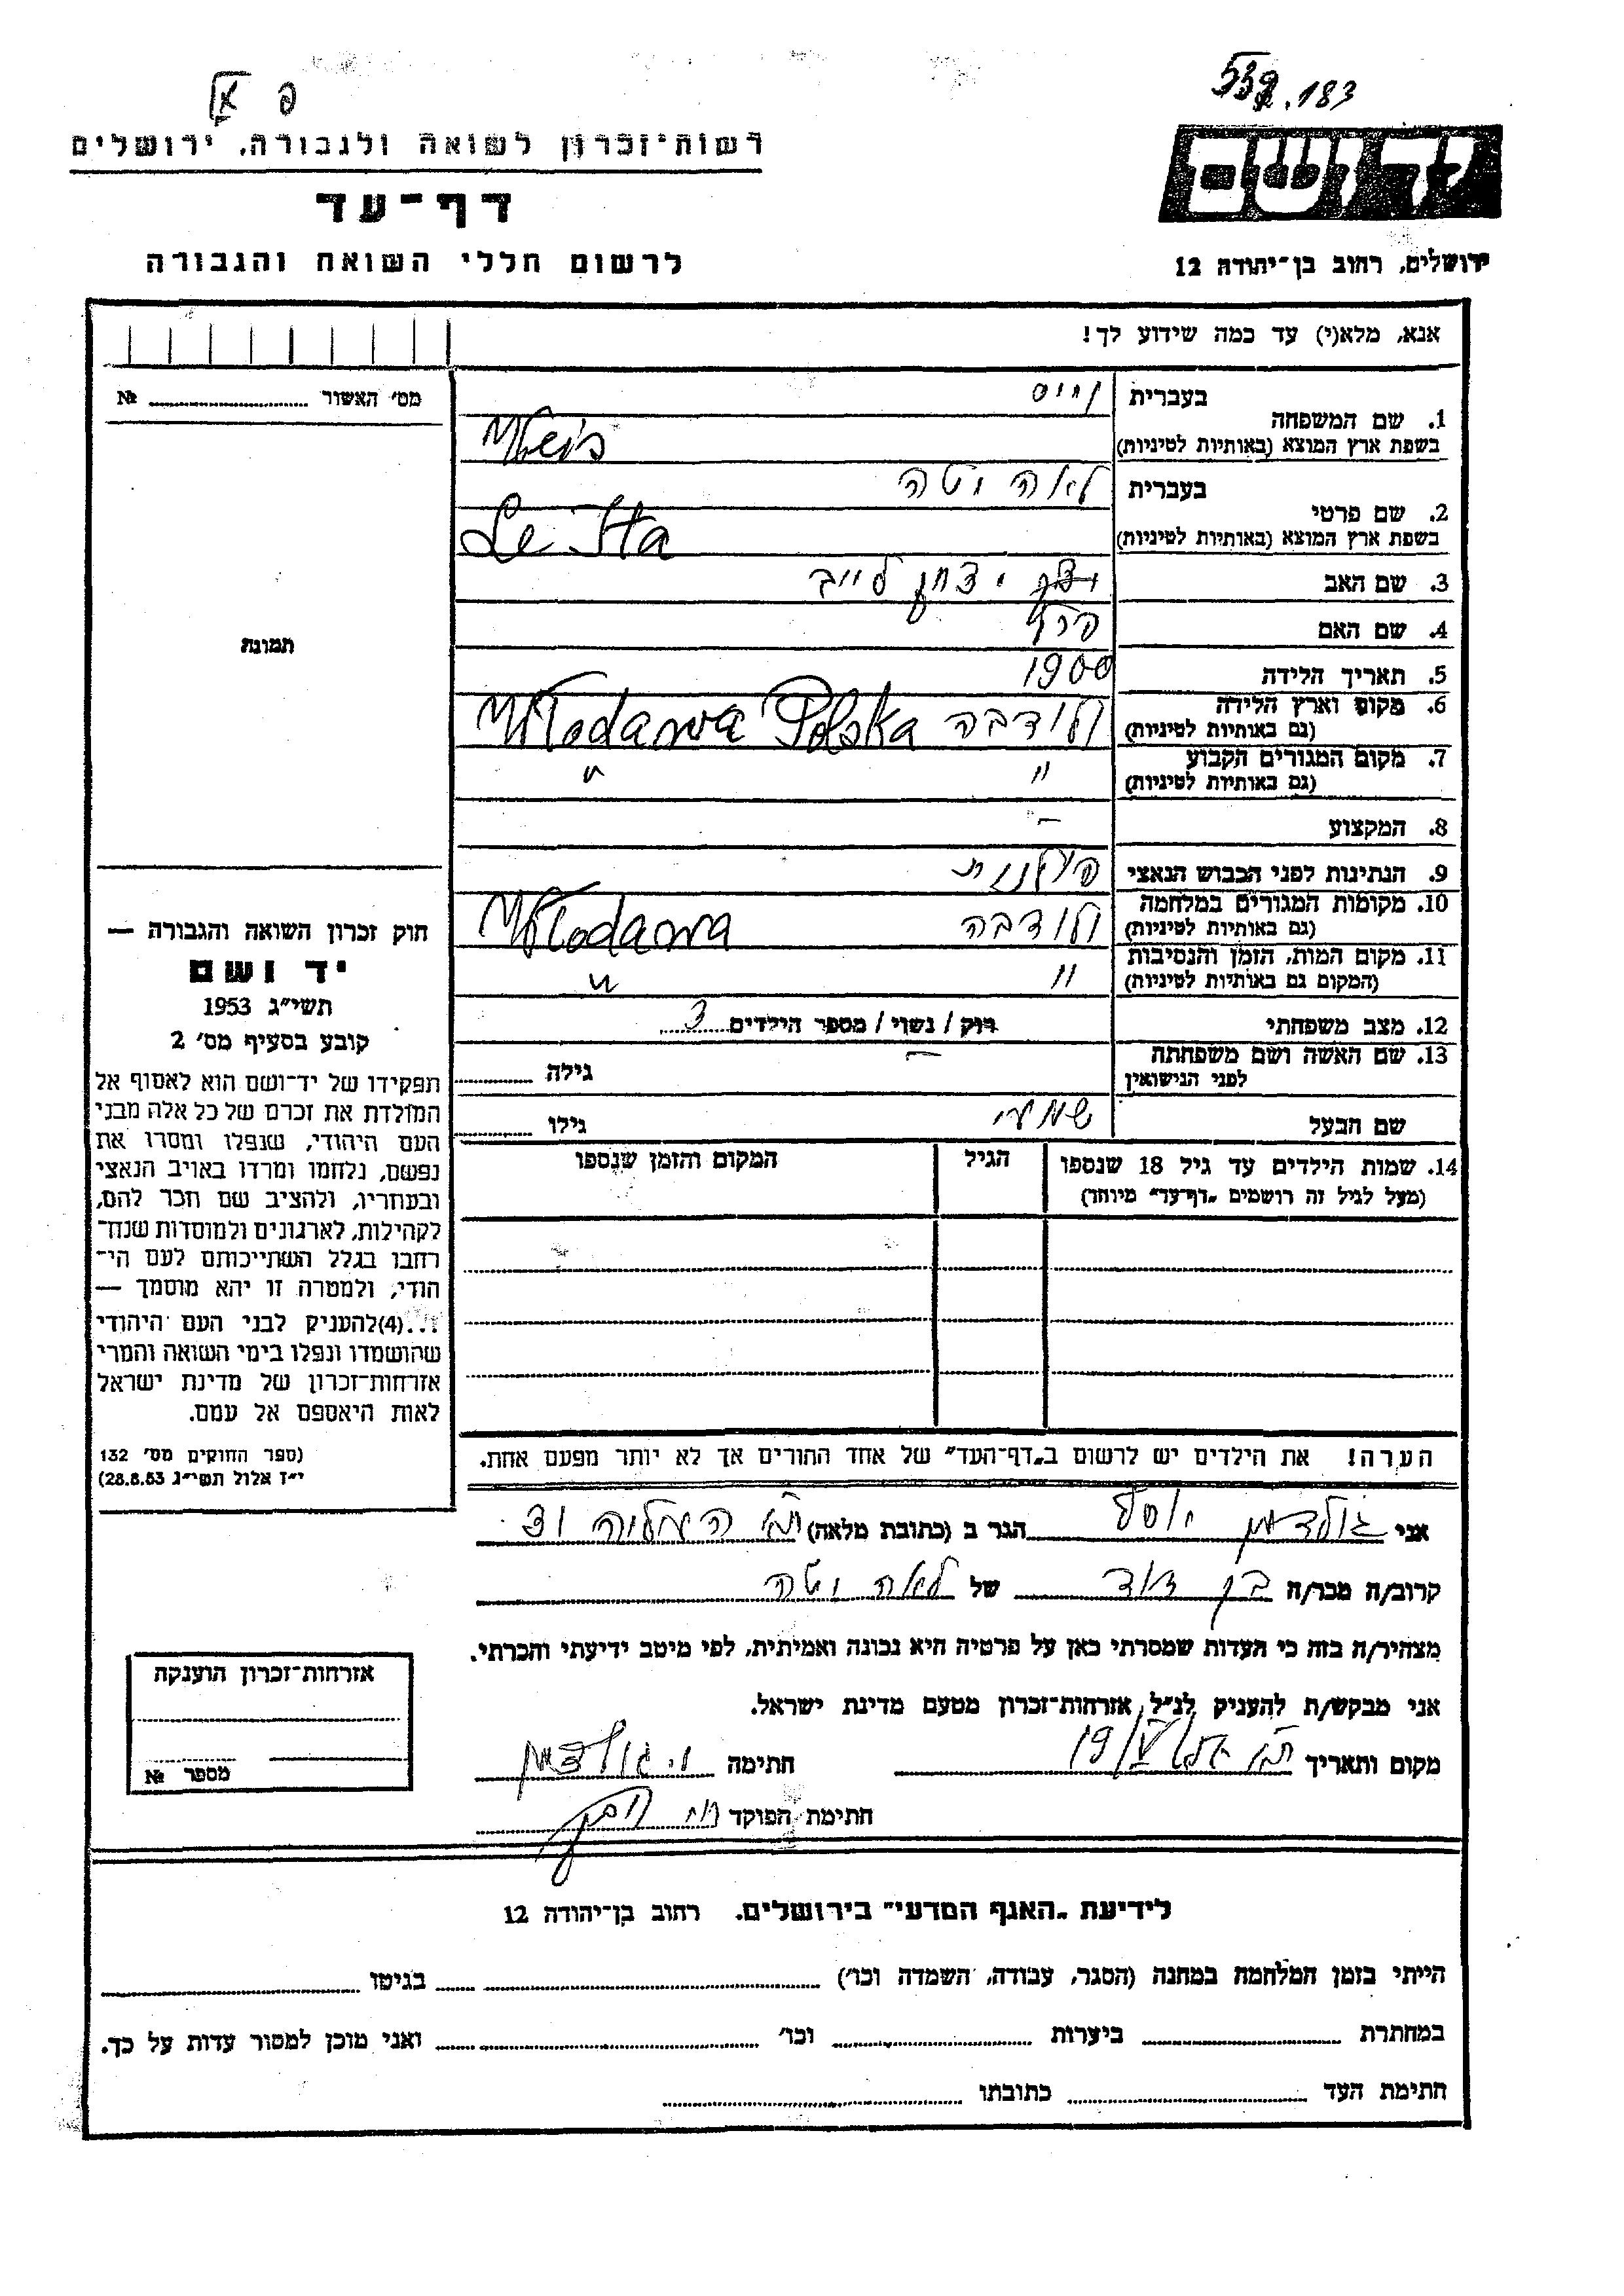 פ
539.183
רשות־זכרון לשואה ולגבורה, ירושלים
יד ושם
דף־עד
לרשום חללי השואה והגבורה
ירושלים, רחוב בן־יהודה 12
אנא, מלא(י) עד כמה שידוע לך!
מס׳ האשור № 
1. שם המשפחה
בעברית וייס
בשפת ארץ המוצא (באותיות לטיניות) Weis
2. שם פרטי
בעברית לאה יטה
בשפת ארץ המוצא (באותיות לטיניות) Le Ita
3. שם האב יצחק לייב
4. שם האם פרל
5. תאריך הלידה 1900
6. מקום וארץ הלידה ולודבה Włodawa Polska
(גם באותיות לטיניות)
7. מקום המגורים הקבוע " "
(גם באותיות לטיניות)
8. המקצוע –
9. הנתינות לפני הכבוש הנאצי פולנית
10. מקומות המגורים במלחמה ולודבה Włodawa
(גם באותיות לטיניות)
11. מקום המות, הזמן והנסיבות " "
(המקום גם באותיות לטיניות)
12. מצב משפחתי רוק / נשוי / מספר הילדים 3
13. שם האשה ושם משפחתה – גילה
לפני הנישואין
שם הבעל גילו
14. שמות הילדים עד גיל 18 שנספו הגיל המקום והזמן שנספו
(מעל לגיל זה רושמים „דף־עד" מיוחד)
תמונה
חוק זכרון השואה והגבורה —
יד ושם
תשי"ג 1953
קובע בסעיף מס׳ 2
תפקידו של יד־ושם הוא לאסוף אל
המולדת את זכרם של כל אלה מבני
העם היהודי, שנפלו ומסרו את
נפשם, נלחמו ומרדו באויב הנאצי
ובעוזריו, ולהציב שם וזכר להם,
לקהילות, לארגונים ולמוסדות שנח־
רבו בגלל השתייכותם לעם הי־
הודי, ולמטרה זו יהא מוסמך —
...(4)להעניק לבני העם היהודי
שהושמדו ונפלו בימי השואה והמרי
אזרחות־זכרון של מדינת ישראל
לאות היאספם אל עמם.
(ספר החוקים מס׳ 132
י"ז אלול תשי"ג 28.8.53)
הערה! את הילדים יש לרשום ב„דף־העד" של אחד ההורים אך לא יותר מפעם אחת.
אני גולדמן יוסף הגר ב (כתובת מלאה) העליה
קרוב/ה מכר/ה בן דוד של לאה יטה
מצהיר/ה בזה כי העדות שמסרתי כאן על פרטיה היא נכונה ואמיתית, לפי מיטב ידיעתי והכרתי.
אני מבקש/ת להעניק לנ"ל אזרחות־זכרון מטעם מדינת ישראל.
מקום ותאריך חתימה י. גולדמן
חתימת הפוקד
אזרחות־זכרון הוענקה
מספר №
לידיעת „האגף המדעי" בירושלים. רחוב בן־יהודה 12
הייתי בזמן המלחמה במחנה (הסגר, עבודה, השמדה וכו׳) בגיטו
במחתרת ביערות וכו׳ ואני מוכן למסור עדות על כך.
חתימת העד כתובתו